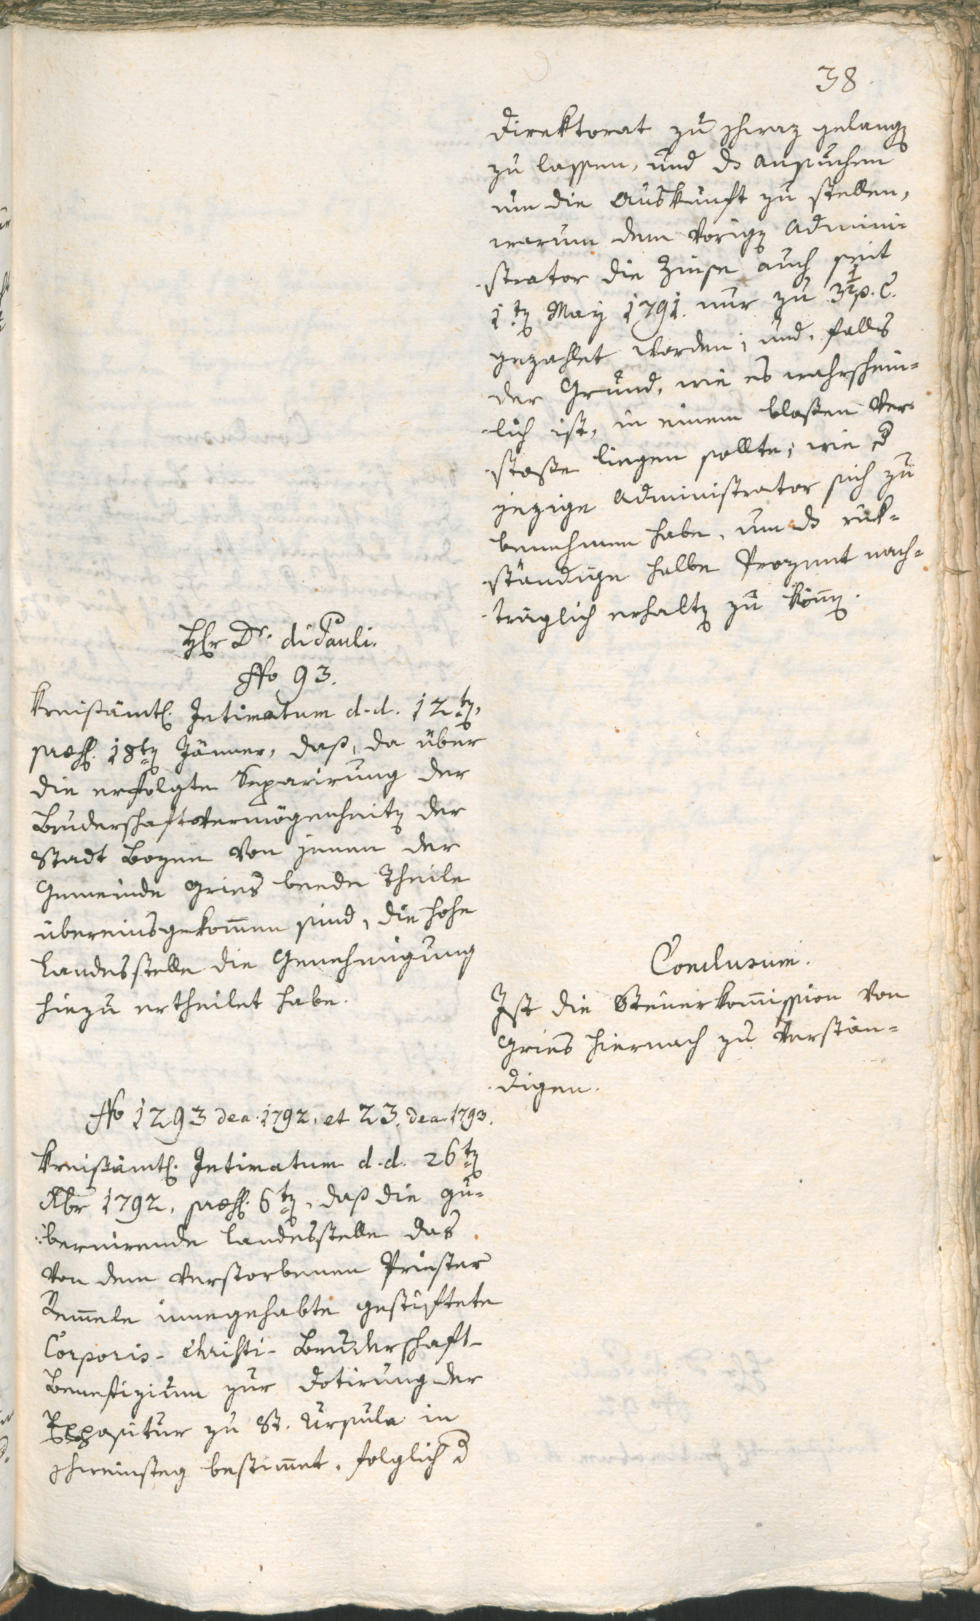 38.
Direktorat zu Schwaz gelang
zu lassen, und ds Ansuchen
um die Auskunft zu stellen,
warum dem vorig Admini-
strator die Zinse auch seit
1t May 1791. nur zu 3½ p. C.
gezahlet worden; und, falls
der Grund, wie es wahrschein-
lich ist, in einem bloßen Ver-
stoße liegen sollte; wie d
jezige Administrator sich zu
benehmen habe, um ds rük-
ständige halbe Prozent nach-
träglich erhalt zu könn.
Hr Dr. di Pauli.
No 93.
Kreisämtl. Intimatum d. d. 12t,
praes. 18t Jänner, daß, da über
die erfolgte Separirung der
Bruderschaftsvermögenheit der
Stadt Bozen von jenen der
Gemeinde Gries beede Theile
übereinsgekommen sind, die hohe
Landesstelle die Genehmigung
hiezu ertheilet habe.
Conclusum.
Ist die Steuerkommission von
Gries hiernach zu verstän-
digen.
No 1293 de a. 1792, et 23. de a. 1793.
Kreisämtl. Intimatum d. d. 26t
Xbr 1792, praes. 6t, daß die gu-
bernirende Landesstelle das
von dem verstorbenen Priester
Remele innegehabte gestiftete
Corporis-Christi-Bruderschaft-
Benefizium zur Dotirung der
Expositur zu St. Ursula in
bestimmet, folglich d